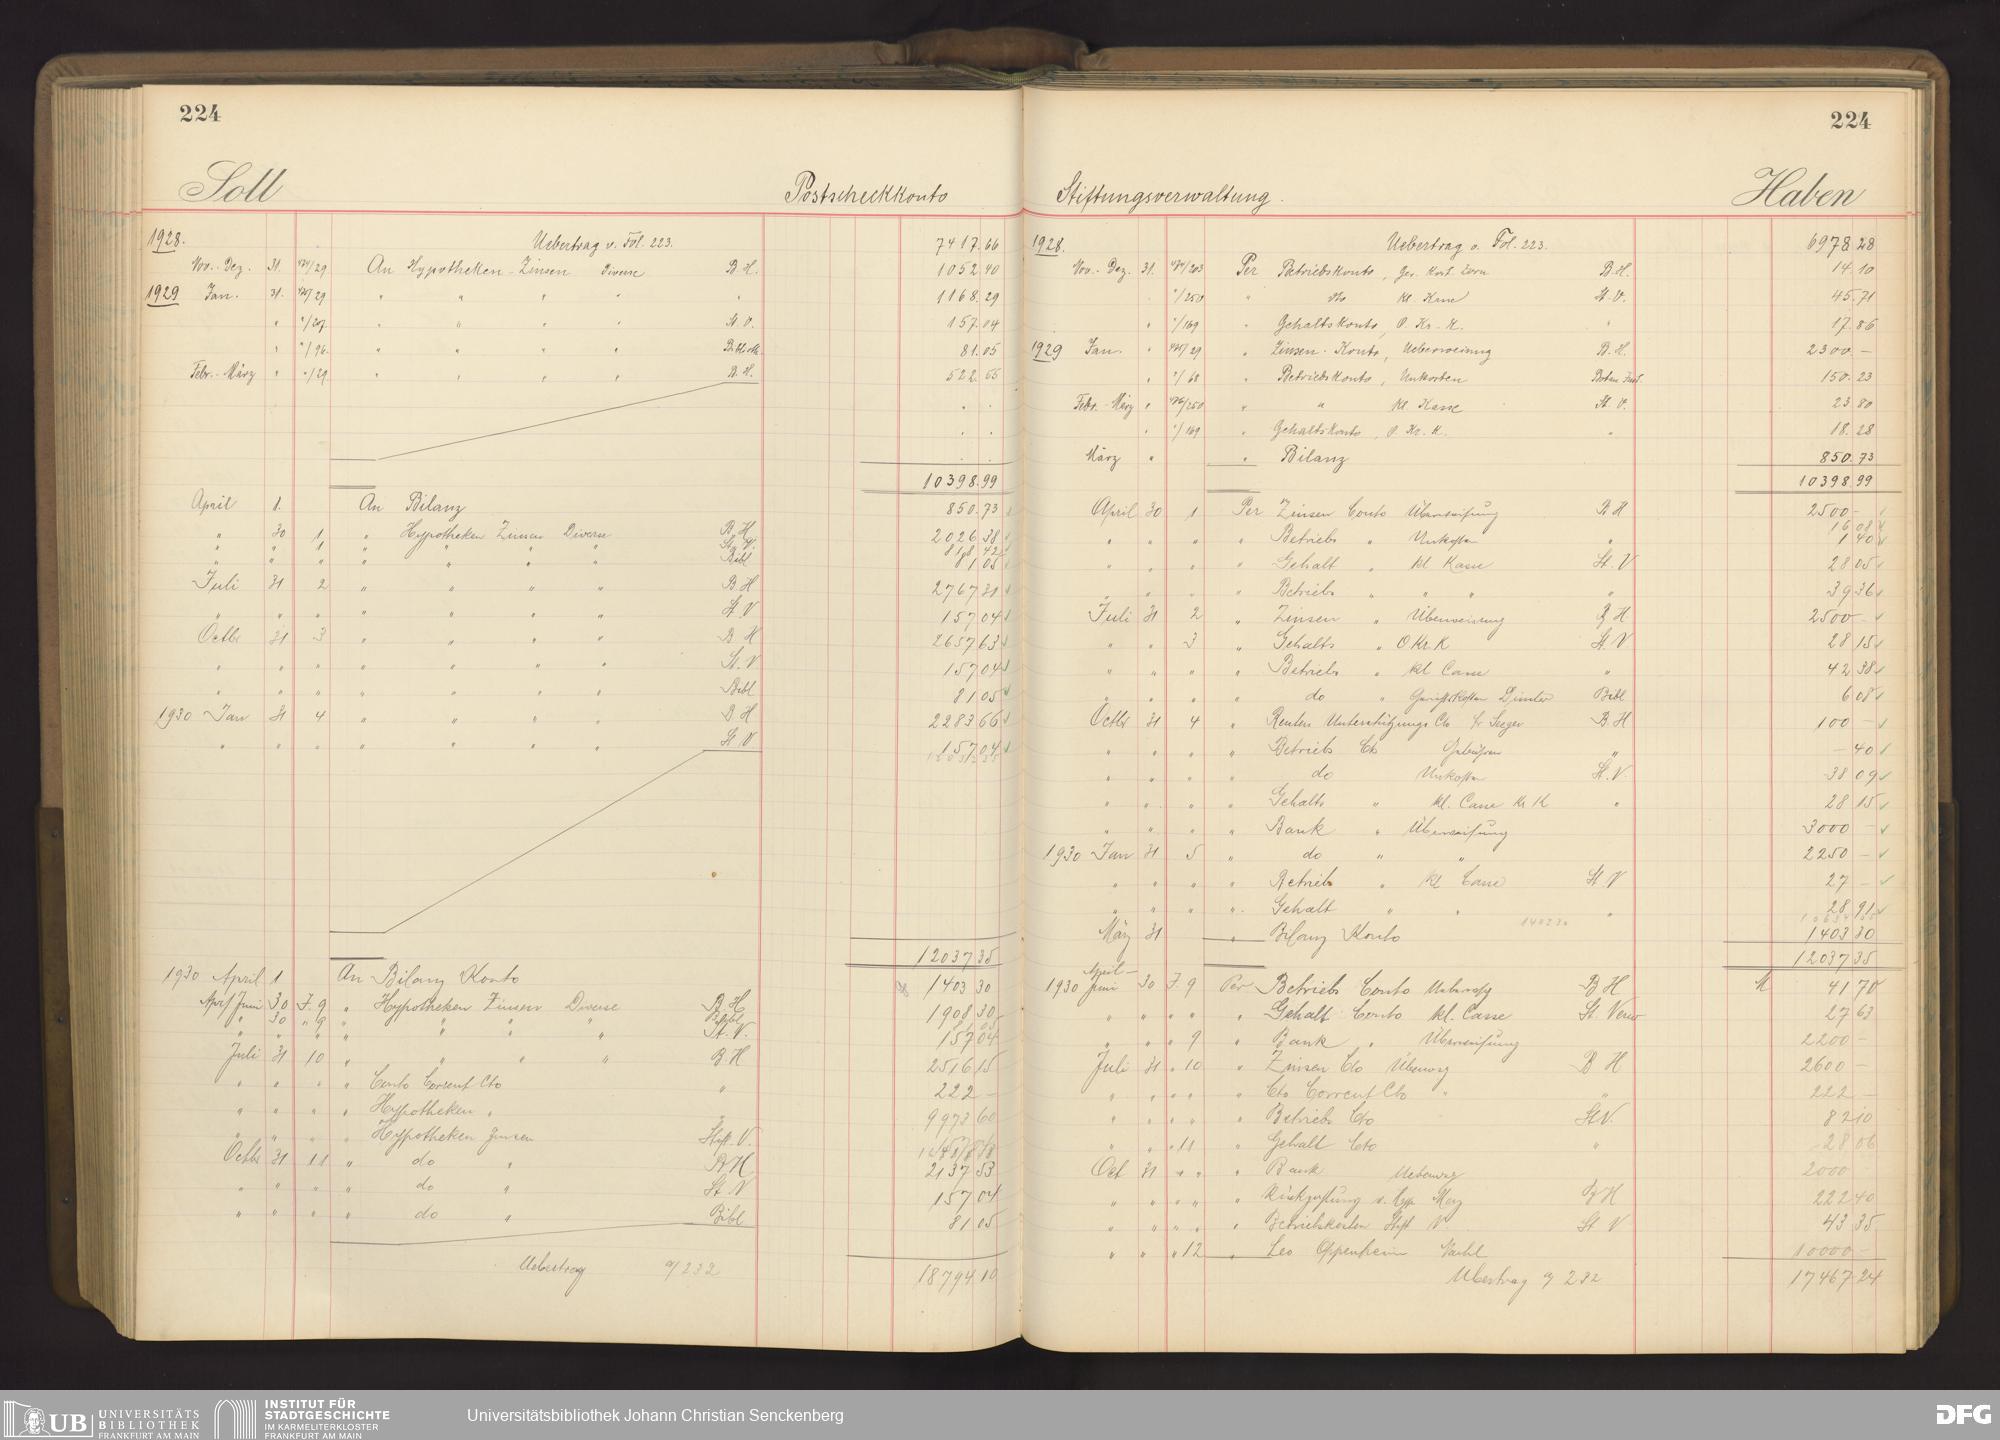 224
Soll Postscheckkonto
1928. Uebertrag v. Fol. 223. 7417.66
Nov.-Dez. 31. /29 An Hypotheken-Zinsen Diverse B.H. 1052.40
1929 Jan. 31. /29 " " " " " 1168.29
" "/207 " " " " St.V. 157.04
" "/96. " " " " Biblioth. 81.05
Febr.-März " "/29 " " " " B.H. 522.55
10398.99
April 1. An Bilanz 850.73
" 30 1 " Hypotheken Zinsen Diverse B.H 2026 38
" " 1 " " " " St. V. 818 42
" " " " " " " Bibl 81 05
Juli 31 2 " " " " B H 2767 31
" " " " " " " St. V 157 04
Octbr 31 3 " " " " B H 2657 63
" " " " " " " St. V 157 04
" " " " " " " Bibl 81 05
1930 Jan 31 4 " " " " B H 2283 66
" " " " " " " St V 157 04
12037 35
1930 April 1 An Bilanz Konto 1403 30
April/Juni 30 J. 9 " Hypotheken Zinsen Diverse B.H. 1908 30
" 30 " 9 " " " " Bibl
" " " " " " " St. V. 157 04
Juli 31 10 " " " " B.H 2516 15
" " " " Conto Corrent Cto " 222 –
" " " " Hypotheken " " 9973 60
" " " " Hypotheken Zinsen Stift. V.
Octbr 31 11 " do " B H 2137 53
" " " " do " St V 157 04
" " " " do " Bibl 81 05
Uebertrag a/232 18794 10
224
Stiftungsverwaltung. Haben
1928. Uebertrag v. Fol. 223. 6978 28
Nov.-Dez. 31. /203 Per Betriebskonto, B.H. 14.10
" "/250 " do kl. Kasse St.V. 45.71
" "/169 " Gehaltskonto, O. Kr.-K. " 17.86
1929 Jan. " /29 " Zinsen-Konto, Ueberweisung B.H. 2300.–
" "/68 " Betriebskonto, Unkosten 150.23
Febr.-März " /250 " " kl. Kasse St. V. 23.80
" "/169 " Gehaltskonto, O. Kr. K. " 18.28
März " " Bilanz 850.73
10398.99
April 30 1 Per Zinsen Conto Überweisung B H 2500 –
16 08
" " " " Betriebs " Unkosten " 1 40
" " " " Gehalt " kl Kasse St. V 28 05
" " " " Betriebs " " " " 39 36
Juli 31 2 " Zinsen " Überweisung B H. 2500 –
" " 3 " Gehalts " O Kr. K St. V. 28 15
" " " " Betriebs " kl Casse " 42 38
" " " " do " Gerichtskosten Bibl 6 08
Octbr 31 4 " Renten Unterstützungs Cto fr Seeger B H 100 –
" " " " Betriebs Cto Gebühren " – 40
" " " " do Unkosten St. V. 38 09
" " " " Gehalts " kl. Casse Kr K " 28 15
" " " " Bank " Überweisung 3000 –
1930 Jan 31 5 " do " " 2250 –
" " " " Betrieb " kl Casse St V 27 –
" " " " Gehalt " " " 28 91
März 31 " Bilanz Konto 1403 30
12037 35
April–
1930 Juni 30 J. 9 Per Betriebs Conto B H M 41 70
" " " " Gehalt Conto kl. Casse St. Verw 27 63
" " " 9 " Bank " Überweisung 2200 –
Juli 31 " 10 " Zinsen Cto Überwsg B H 2600 –
" " " " Cto Corrent Cto " " 222 –
" " " " Betriebs Cto St V. 82 10
" " " 11 " Gehalt Cto " 28 06
Oct 31 " " " Bank Ueberwsg 2000 –
" " " " " Rückzahlung v. Hyp. May B H 222 40
" " " " " Betriebskosten Stift V. St V 43 35
" " " 12 " Leo Oppenheim 10000 –
Uebertrag a/ 232 17467 24
UB UNIVERSITÄTS
BIBLIOTHEK
FRANKFURT AM MAIN
INSTITUT FÜR
STADTGESCHICHTE
IM KARMELITERKLOSTER
FRANKFURT AM MAIN
Universitätsbibliothek Johann Christian Senckenberg
DFG